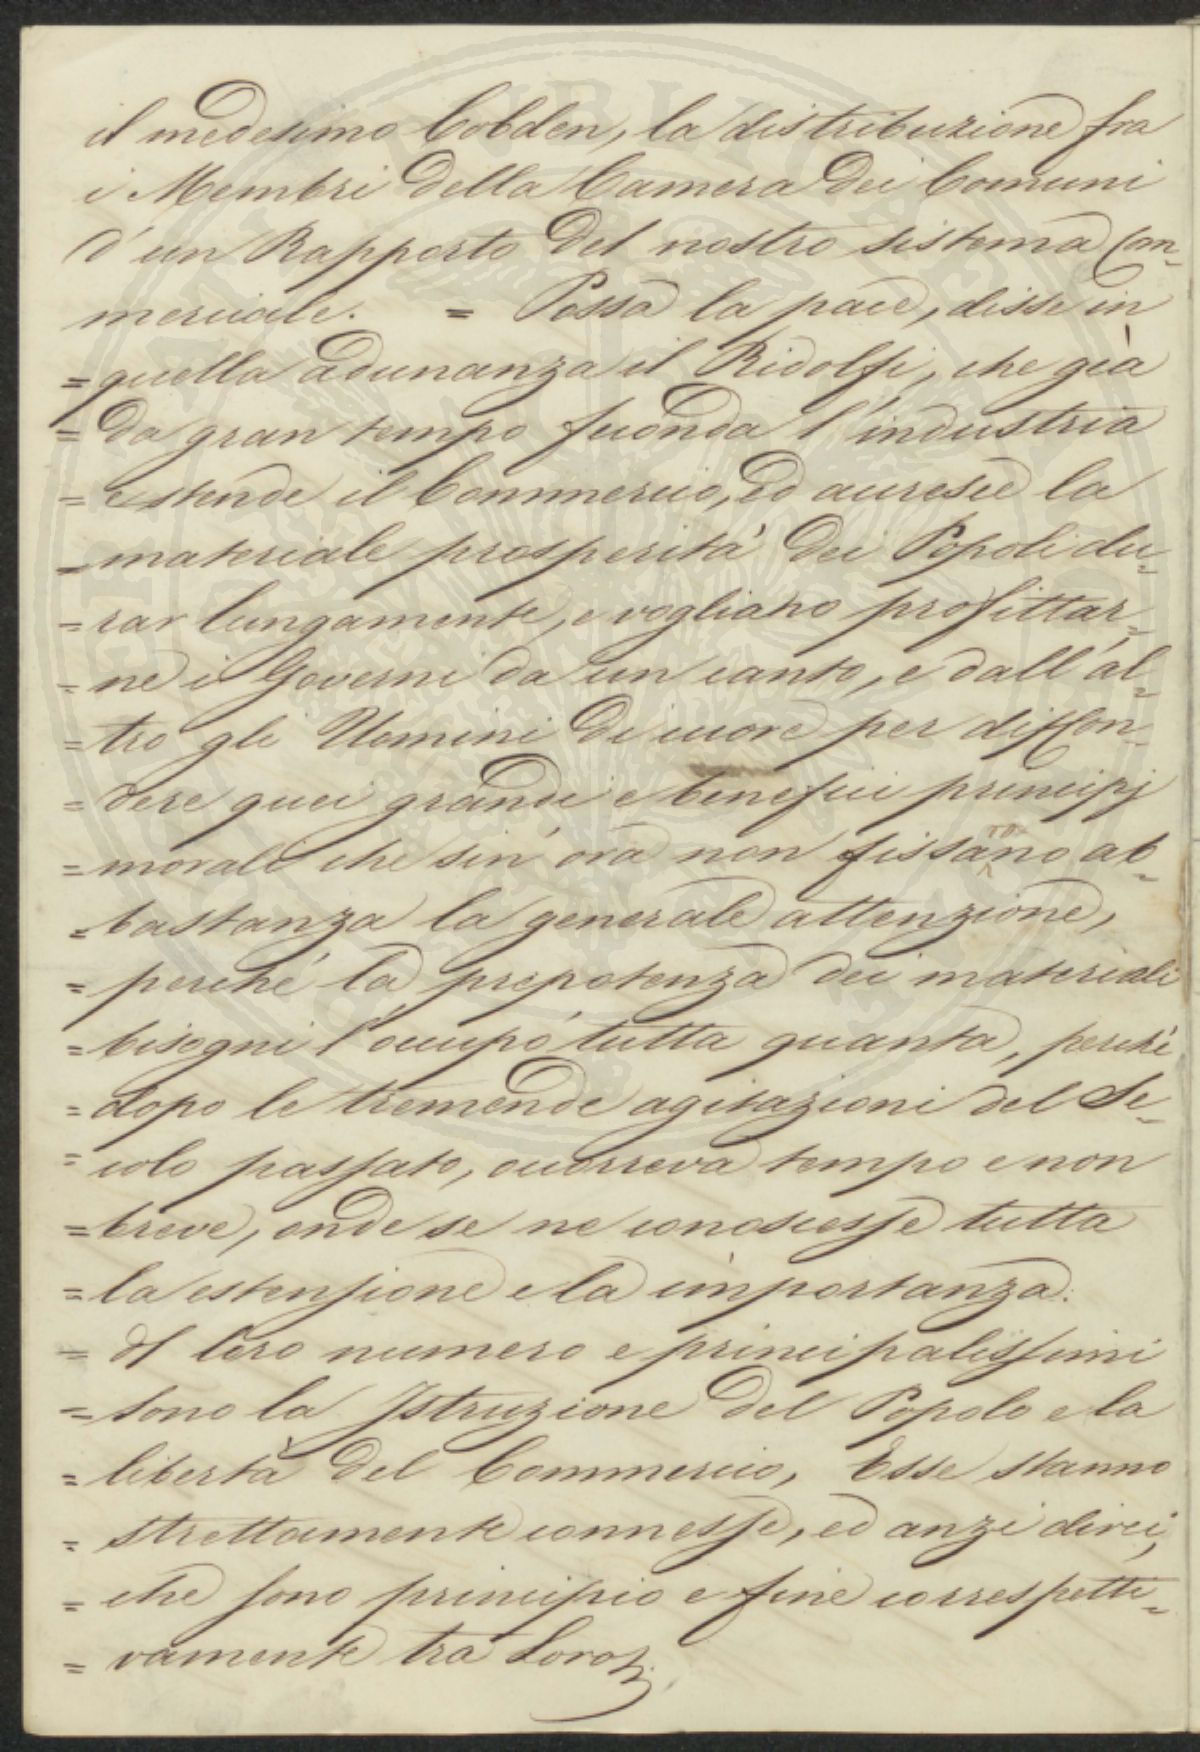 il medesimo Cobden, la distribuzione fra
i Membri della Camera dei Comuni
d'un Rapporto del nostro sistema Com=
merciale. = Possa la pace, disse in
= quella adunanza il Ridolfi, che già
= da gran tempo feconda l'industria
= estende il Commercio, ed accresce la
= materiale prosperità dei Popoli du=
= rar lungamente, e vogliano profittar=
= ne i Governi da un canto, e dall'al=
= tro gli Uomini di cuore per diffon=
= dere quei grandi e benefici principj
= morali che sin'ora non fissarono ab=
= bastanza la generale attenzione,
= perché la prepotenza dei materiali
= bisogni l'occupò tutta quanta, perchè
= dopo le tremende agitazioni del Se=
= colo passato, occorreva tempo e non
= breve, onde se ne conoscesse tutta
= la estensione e la importanza.
= Al loro numero e principalissimi
= sono la Istruzione del Popolo e la
= libertà del Commercio, Esse stanno
= strettamente connesse, ed anzi direi,
= che sono principio e fine correspetti=
= vamente tra Loro.